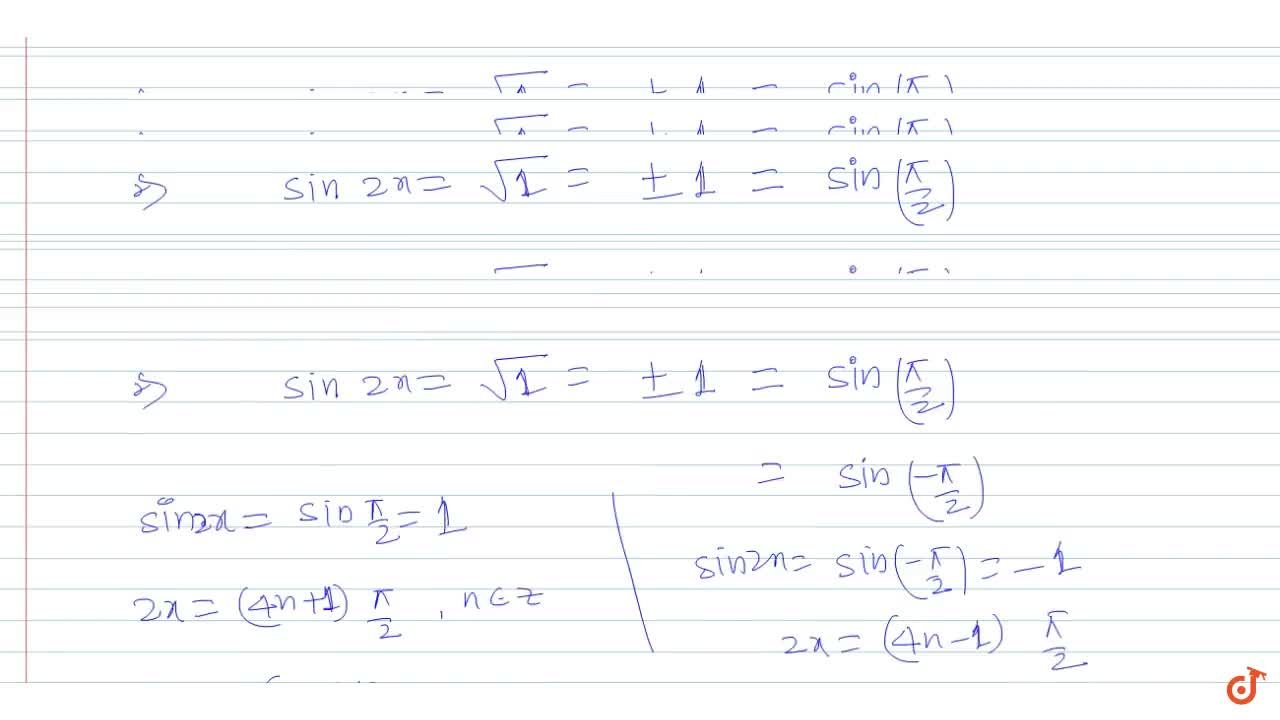 ⇒ sin 2x = √1 = ± 1 = sin (π/2)
⇒ sin 2x = √1 = ± 1 = sin (π/2)
= sin (-π/2)
sin2x = sin π/2 = 1
2x = (4n+1) π/2 , n∈z
sin2x = sin (-π/2) = -1
2x = (4n-1) π/2